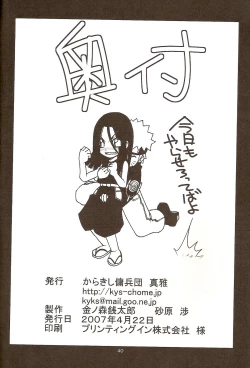 奥付
今日も
やらせろってばよ
発行 からきし傭兵団 真雅
http://kys-chome.jp
kyks@mail.goo.ne.jp
製作 金ノ森銭太郎 砂原 渉
発行日 2007年4月22日
印刷 プリンティングイン株式会社 様
40